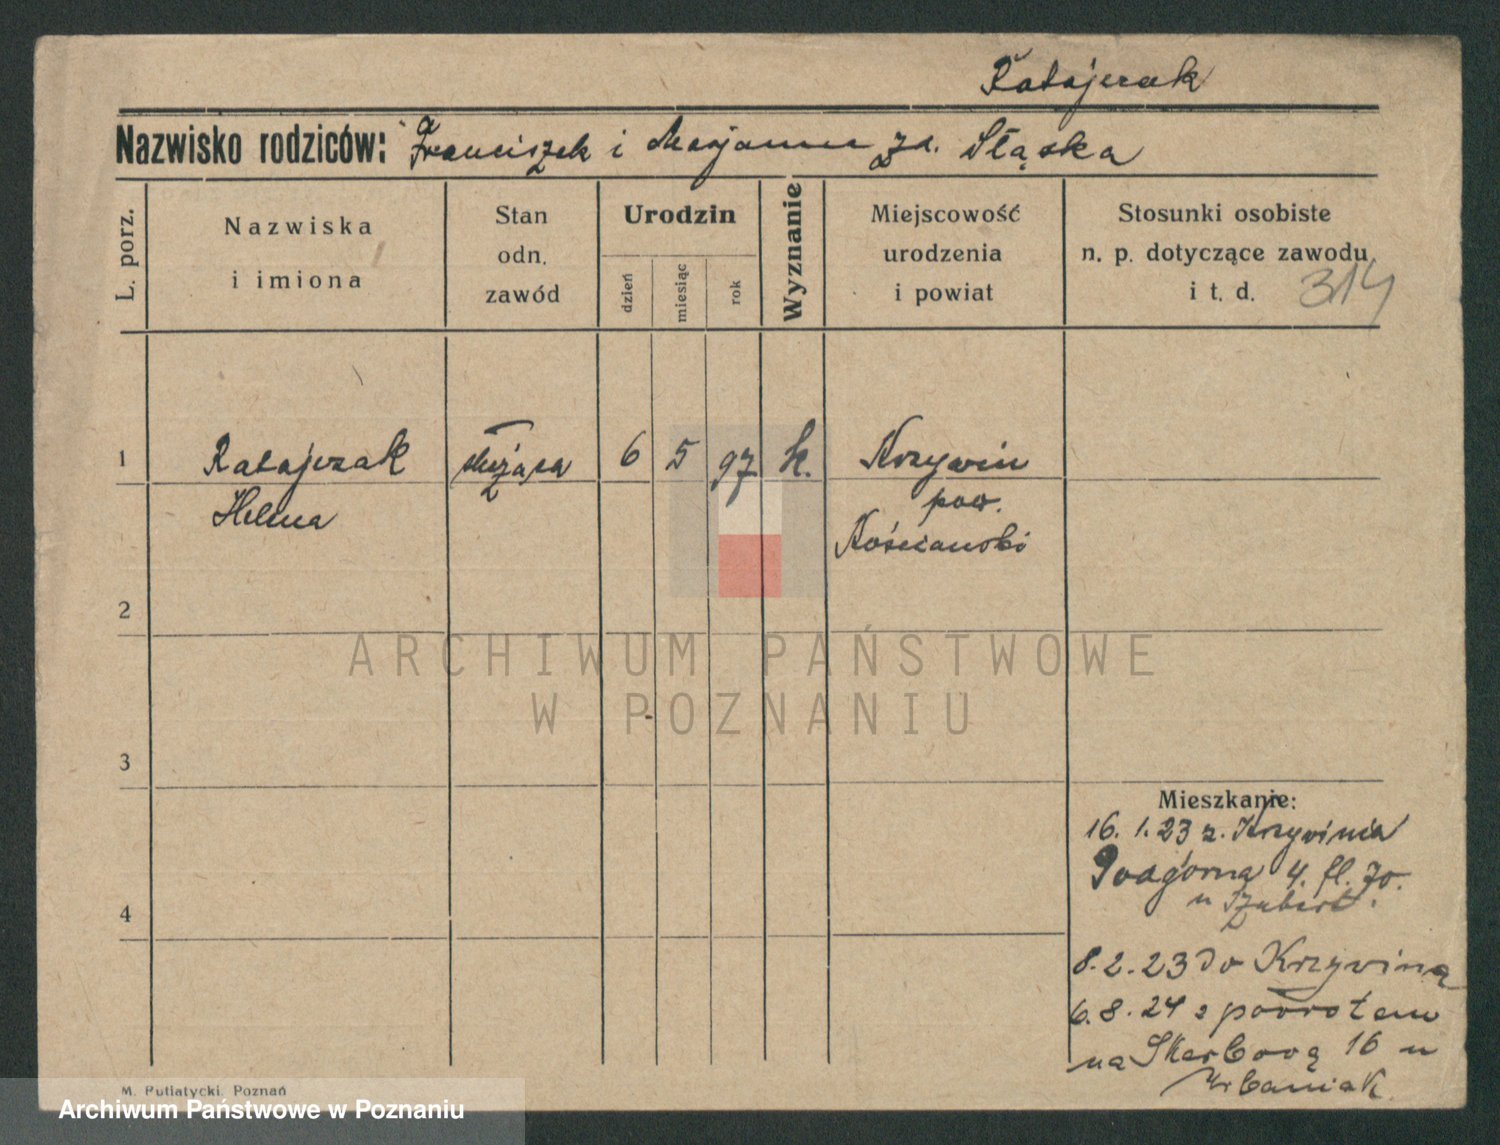 Ratajczak
Nazwisko rodziców: Franciszek i Marjanna zd. Śląska
L. porz.
Nazwiska
i imiona
Stan
odn.
zawód
Urodzin
dzień
miesiąc
rok
Wyznanie
Miejscowość
urodzenia
i powiat
Stosunki osobiste
n. p. dotyczące zawodu
i t. d.
314
1 Ratajczak służąca 6 5 97 k. Krzywin
Helena pow.
Kościański
2
ARCHIWUM PAŃSTWOWE
W POZNANIU
3
Mieszkanie:
16. 1. 23 z. Krzywinia
Podgórna 4. fl. 70.
u Szubert.
4
8. 2. 23 do Krzywina
6. 8. 24 z powrotem
na Skarbową 16 u
Urbaniak
M. Putiatycki, Poznań
Archiwum Państwowe w Poznaniu